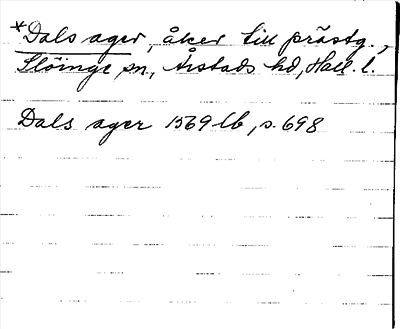 *Dals ager, åker till prästg.,
Slöinge sn., Årstads hd, Hall. l.
Dals ager 1569 lb, s. 698